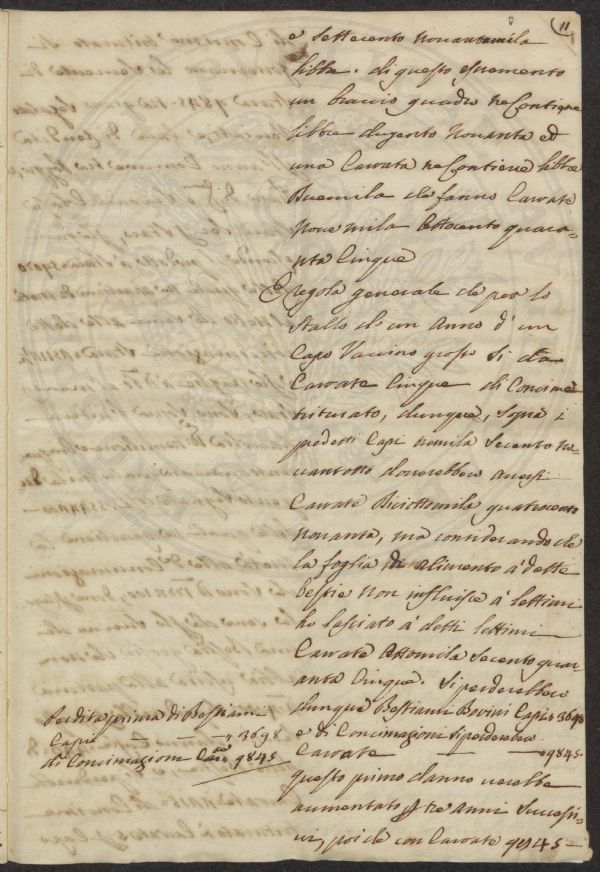 11
e settecento novantamila
libbre. di questo escremento
un braccio quadro ne Contiene
libbre dugento Novanta ed
una Carrata ne Contiene libbre
Duemila che fanno Carrate
Nove mila Ottocento quara-
nta Cinque
E regola generale che per lo
Stallo di un Anno d'un
Capo Vaccino grosso si dia
Carrate Cinque di Concime
triturato, dunque, sopra i
predetti Capi tremila Secento no-
vantotto doverebbero aversi
Carrate Diciottomila quattrocento
Novanta, ma considerando che
la foglia di alimento à dette
bestie Non influisce à lettimi
ho lasciato à detti lettimi
Carrate Ottomila Secento quar-
anta Cinque. Si perderebbero
dunque Bestiami Bovini Capi 3698
e di Concimazioni si perderebero
Carrate 9845.
questo primo danno verebbe
aumentato tre anni Successi-
vi, poiche con Carrate 9845 -
Perdita prima di Bestiami
Capi 3698
di Concimazioni Carr 9845